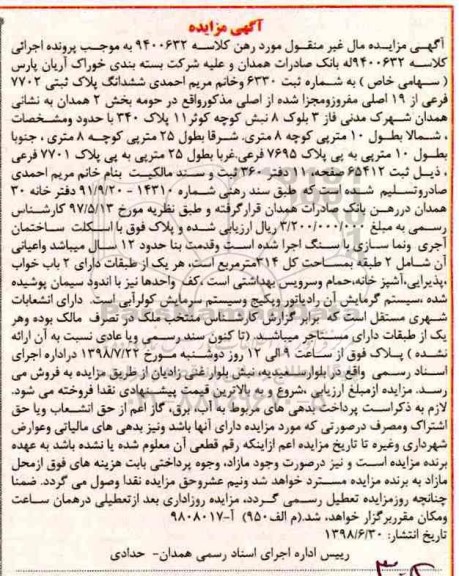 آگهی مزایده
آگهی مزایده مال غیر منقول مورد رهن کلاسه ۹۴۰۰۶۳۲ به موجب پرونده اجرائی
کلاسه ۹۴۰۰۶۳۲له بانک صادرات همدان و علیه شرکت بسته بندی خوراک آریان پارس
( سهامی خاص ) به شماره ثبت ۶۳۳۰ وخانم مریم احمدی ششدانگ پلاک ثبتی ۷۷۰۲
فرعی از ۱۹ اصلی مفروزومجزا شده از اصلی مذکورواقع در حومه بخش ۲ همدان به نشانی
همدان شهرک مدنی فاز ۳ بلوک ۸ نبش کوچه کوثر۱۱ پلاک ۳۴۰ با حدود ومشخصات
، شمالا بطول ۱۰ مترپی کوچه ۸ متری. شرقا بطول ۲۵ مترپی کوچه ۸ متری ، جنوبا
بطول ۱۰ مترپی به پی پلاک ۷۶۹۵ فرعی.غربا بطول ۲۵ مترپی به پی پلاک ۷۷۰۱ فرعی
، ذیل ثبت ۶۵۴۱۲ صفحه ۱۱ دفتر ۳۶۰ ثبت و سند مالکیت بنام خانم مریم احمدی
صادروتسلیم شده است که طبق سند رهنی شماره ۱۴۳۱۰ – ۹۱/۹/۲۰ دفتر خانه ۳۰
همدان دررهن بانک صادرات همدان قرارگرفته و طبق نظریه مورخ ۹۷/۵/۱۳ کارشناس
رسمی به مبلغ ۳/۲۰۰/۰۰۰/۰۰۰ ریال ارزیابی شده و پلاک فوق با اسکلت ساختمان
آجری ونما سازی با سنگ اجرا شده است وقدمت بنا حدود ۱۲ سال میباشد واعیانی
آن شامل ۲ طبقه بمساحت کل ۳۱۴مترمربع است، هر یک از طبقات دارای ۲ باب خواب
،پذیرایی،آشپز خانه،حمام وسرویس بهداشتی است.کف واحدها نیز با اندود سیمان پوشیده
شده .سیستم گرمایش آن رادیاتور وپکیج وسیستم سرمایش کولرآبی است. دارای انشعابات
شهری مستقل است که برابر گزارش کارشناس منتخب ملک در تصرف مالک بوده وهر
یک از طبقات دارای مستاجر میباشد. (تا کنون سند رسمی ویا عادی نسبت به آن ارائه
نشده ) پلاک فوق از ساعت ۹ الی ۱۲ روز دوشنبه مورخ ۱۳۹۸/۷/۲۲ دراداره اجرای
اسناد رسمی واقع در بلوارسعیدیه، نبش بلوارغنی زادیان از طریق مزایده به فروش می
رسد. مزایده ازمبلغ ارزیابی ،شروع و به بالاترین قیمت پیشنهادی نقدا فروخته می شود.
لازم به ذکراست پرداخت بدهی های مربوط به آب، برق، گاز اعم از حق انشعاب ویا حق
اشتراک ومصرف درصورتی که مورد مزایده دارای آنها باشد ونیز بدهی های مالیاتی وعوارض
شهرداری وغیره تا تاریخ مزایده اعم ازاینکه رقم قطعی آن معلوم شده یا نشده باشد به عهده
برنده مزایده است و نیز درصورت وجود مازاد، وجوه پرداختی بابت هزینه های فوق ازمحل
مازاد به برنده مزایده مسترد خواهد شد ونیم عشروحق مزایده نقدا وصول می گردد. ضمنا
چنانچه روزمزایده تعطیل رسمی گردد، مزایده روزاداری بعد ازتعطیلی درهمان ساعت
ومکان مقرربرگزار خواهد، شد.(م الف۹۵۰) آ-۹۸۰۸۰۱۷
تاریخ انتشار: ۱۳۹۸/۶/۳۰
رییس اداره اجرای اسناد رسمی همدان- حدادی